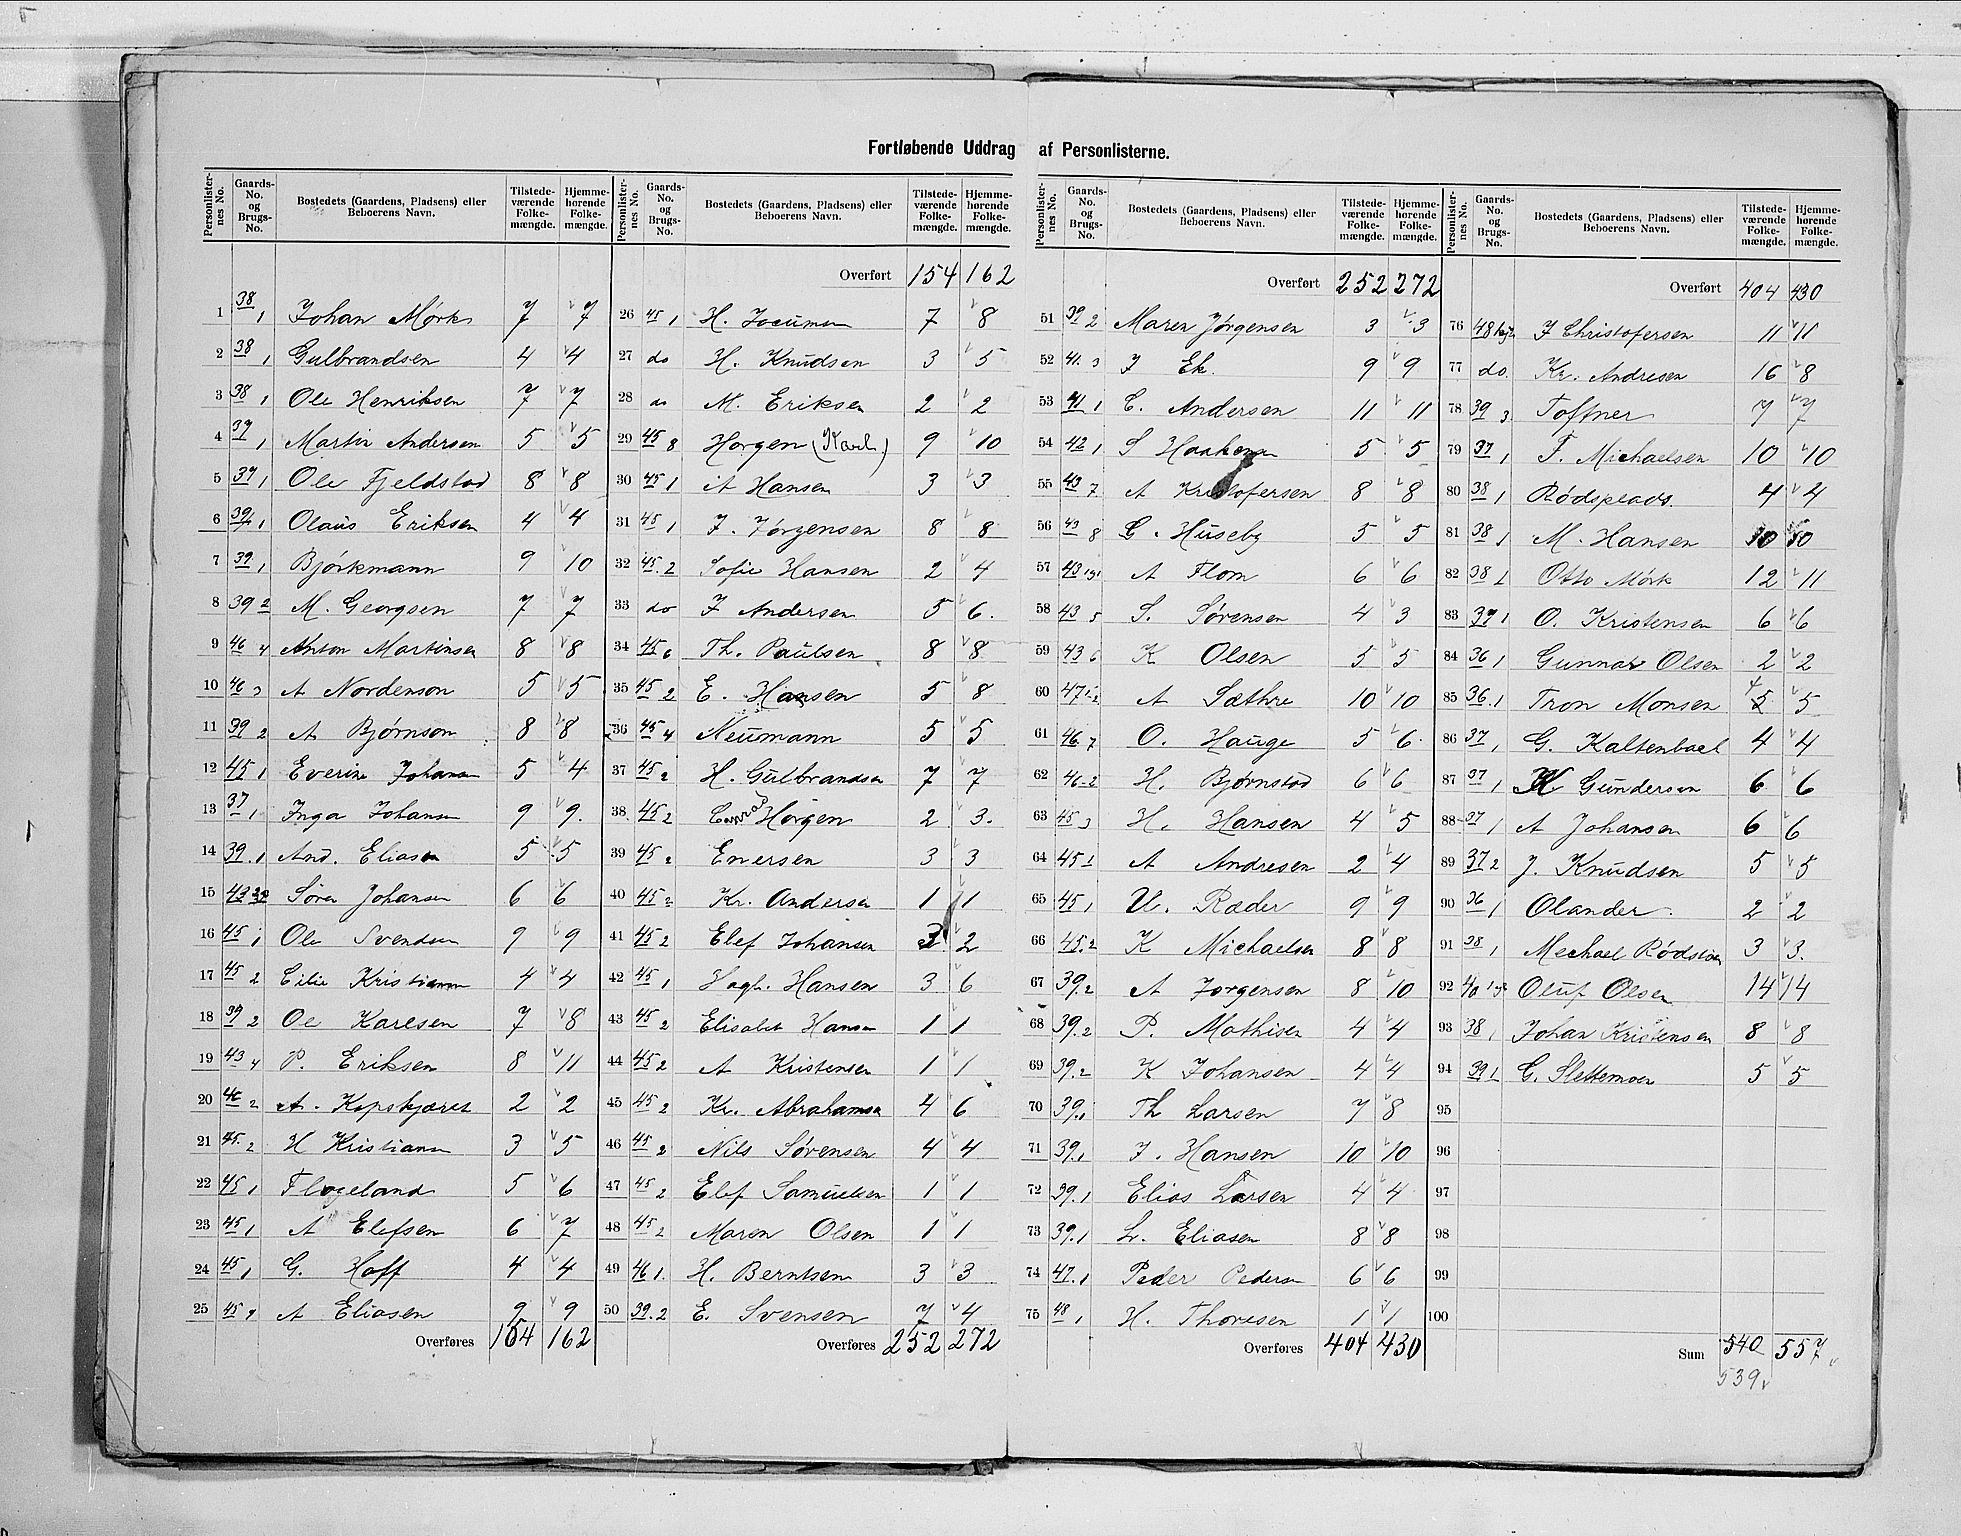 Fortløbende Uddrag af Personlisterne.
Personlister-nes No. Gaards-No. og Brugs-No. Bostedets (Gaardens, Pladsens) eller Beboerens Navn. Tilstede-værende Folke-mængde. Hjemme-hørende Folke-mængde.
1 38 1 Johan Mørk 7 7
2 38 1 Gulbrandsen 4 4
3 38 1 Ole Henriksen 7 7
4 37 1 Martin Andersen 5 5
5 37 1 Ole Fjeldstad 8 8
6 1 Olaus Eriksen 4 4
7 39 1 Bjørkmann 9 10
8 39 2 M. Georgsen 7 7
9 46 4 Anton Martinsen 8 8
10 46 3 A Nordenson 5 5
11 39 2 A Bjørnson 8 8
12 45 1 Everine Johansen 5 4
13 37 1 Inga Johansen 9 9.
14 39 1 And. Eliasen 5 5
15 43 Søren Johansen 6 6
16 45 1 Ole Svendsen 9 9
17 45 2 Cilie Kristiansen 4 4
18 39 2 Ol Karlsen 7 8
19 43 4 P. Eriksen 8 11
20 46 2 A. Kopskjæret 2 2
21 45. 2 H Kristiansen 3 5
22 45 1 Flogeland 5 6
23 45 1 A Elefsen 6 7
24 45 1 G. Hoff 4 4
25 45 A Eliasen 9 9
Overføres 154 162
Personlister-nes No. Gaards-No. og Brugs-No. Bostedets (Gaardens, Pladsens) eller Beboerens Navn. Tilstede-værende Folke-mængde. Hjemme-hørende Folke-mængde.
Overført 154 162
26 45 1 H. 7 8
27 do H. Knudsen 3 5
28 do M. Eriksen 2 2
29 45 8 Horgen (Karl.) 9 10
30 45 1 A Hansen 3 3
31 45 1 J. Jørgensen 8 8
32 45. 2 Sofie Hansen 2 4
33 do J Andersen 5 6.
34 45 6 Th. Paulsen 8 8
35 45 2 E. Hansen 5 8
36 45 4 Neumann 5 5
37 45 2 H. Gulbrandsen 7 7
38 45 2 Horgen 2 3.
39 45 2 Eversen 3 3
40 45 2 Kr. Andersen 1 1
41 45 2 Elef Johansen 2
42 45 1 Hagb. Hansen 3 6
43 45 2 Elisabet Hansen 1 1
44 45 2 A Kristensen 1 1
45 45 2 Kr. Abrahamsen 4 6
46 45 2 Nils Sørensen 4 4
47 45 2 Elef Samuelsen 1 1
48 45 2 Maren Olsen 1 1
49 46 1. H. Berntsen 3 3
50 39. 2 E. Svensen 7 4
Overføres 252 272
Personlister-nes No. Gaards-No. og Brugs-No. Bostedets (Gaardens, Pladsens) eller Beboerens Navn. Tilstede-værende Folke-mængde. Hjemme-hørende Folke-mængde.
Overført 252 272
51 39 2 Maren Jørgensen 3 3
52 41. 3 J Ek. 9 9
53 41 1 C. Andersen 11 11
54 42 1 S Haakensen 5 5
55 43 7 A Kristofersen 8 8
56 43 8 G. Huseby 5 5
57 43 A Flom 6 6
58 43 5 S. Sørensen 4 3
59 43 6 K Olsen 5 5
60 47 A Sæthre 10 10
61 46 7 O. Hauge 5 6
62 46-2 H. Bjørnstad 6 6
63 45 3 H. Hansen 4 5
64 45 1 A Andresen 2 4
65 45 1 U. Ræder 9 9
66 45. 2 K Michaelsen 8 8
67 39. 2 A Jorgensen 8 10
68 39. 2 P. Mathisen 4 4
69 39. 2 K Johansen 4 4
70 39. 1 Th Larsen 7 8
71 39. 1 J. Hansen 10 10
72 39. 1 Elias Larsen 4 4
73 39. 1 L. Eliasen 8 8
74 47. 1 Peder Pedersen 6 6
75 48 1 H. Thoresen 1 1
Overføres 404 430
Personlister-nes No. Gaards-No. og Brugs-No. Bostedets (Gaardens, Pladsens) eller Beboerens Navn. Tilstede-værende Folke-mængde. Hjemme-hørende Folke-mængde.
Overført 404 430
76 48 J Christofersen 11 11
77 do. Kr. Andresen 16 8
78 39 3 Toftner 7 7
79 37 1 F. Michaelsen 10 10
80 38 1 Rødsplads. 4 4
81 38 1 M. Hansen 10 10
82 38 1 Otto Mørk 12 11
83 39 1 O. Kristensen 6 6
84 36 1 Gunnar Olsen 2 2
85 36. 1 Tron Monsen 4 5
86 37 1 G. Kaltenbael 4 4
87 37 1 K Gundersen 6 6
88 37 1 A Johansen 6 6
89 37 2 J. Knudsen 5 5
90 36 1 Olander 2 2
91 38 1 Mechael Rødstoen 3 3.
92 40 Oluf Olsen 14 14
93 38 1 Johan Kristensen 8 8
94 39 1 G. Slettemoen 5 5
95
96
97
98
99
100
Sum 540 557
539